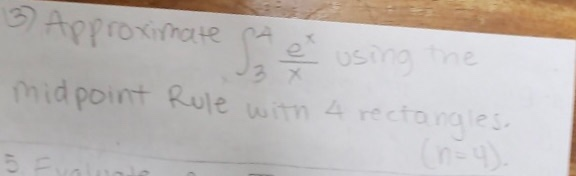 (3) Approximate ∫₃⁴ eˣ/x using the
midpoint Rule with 4 rectangles.
(n=4).
5 Evaluate